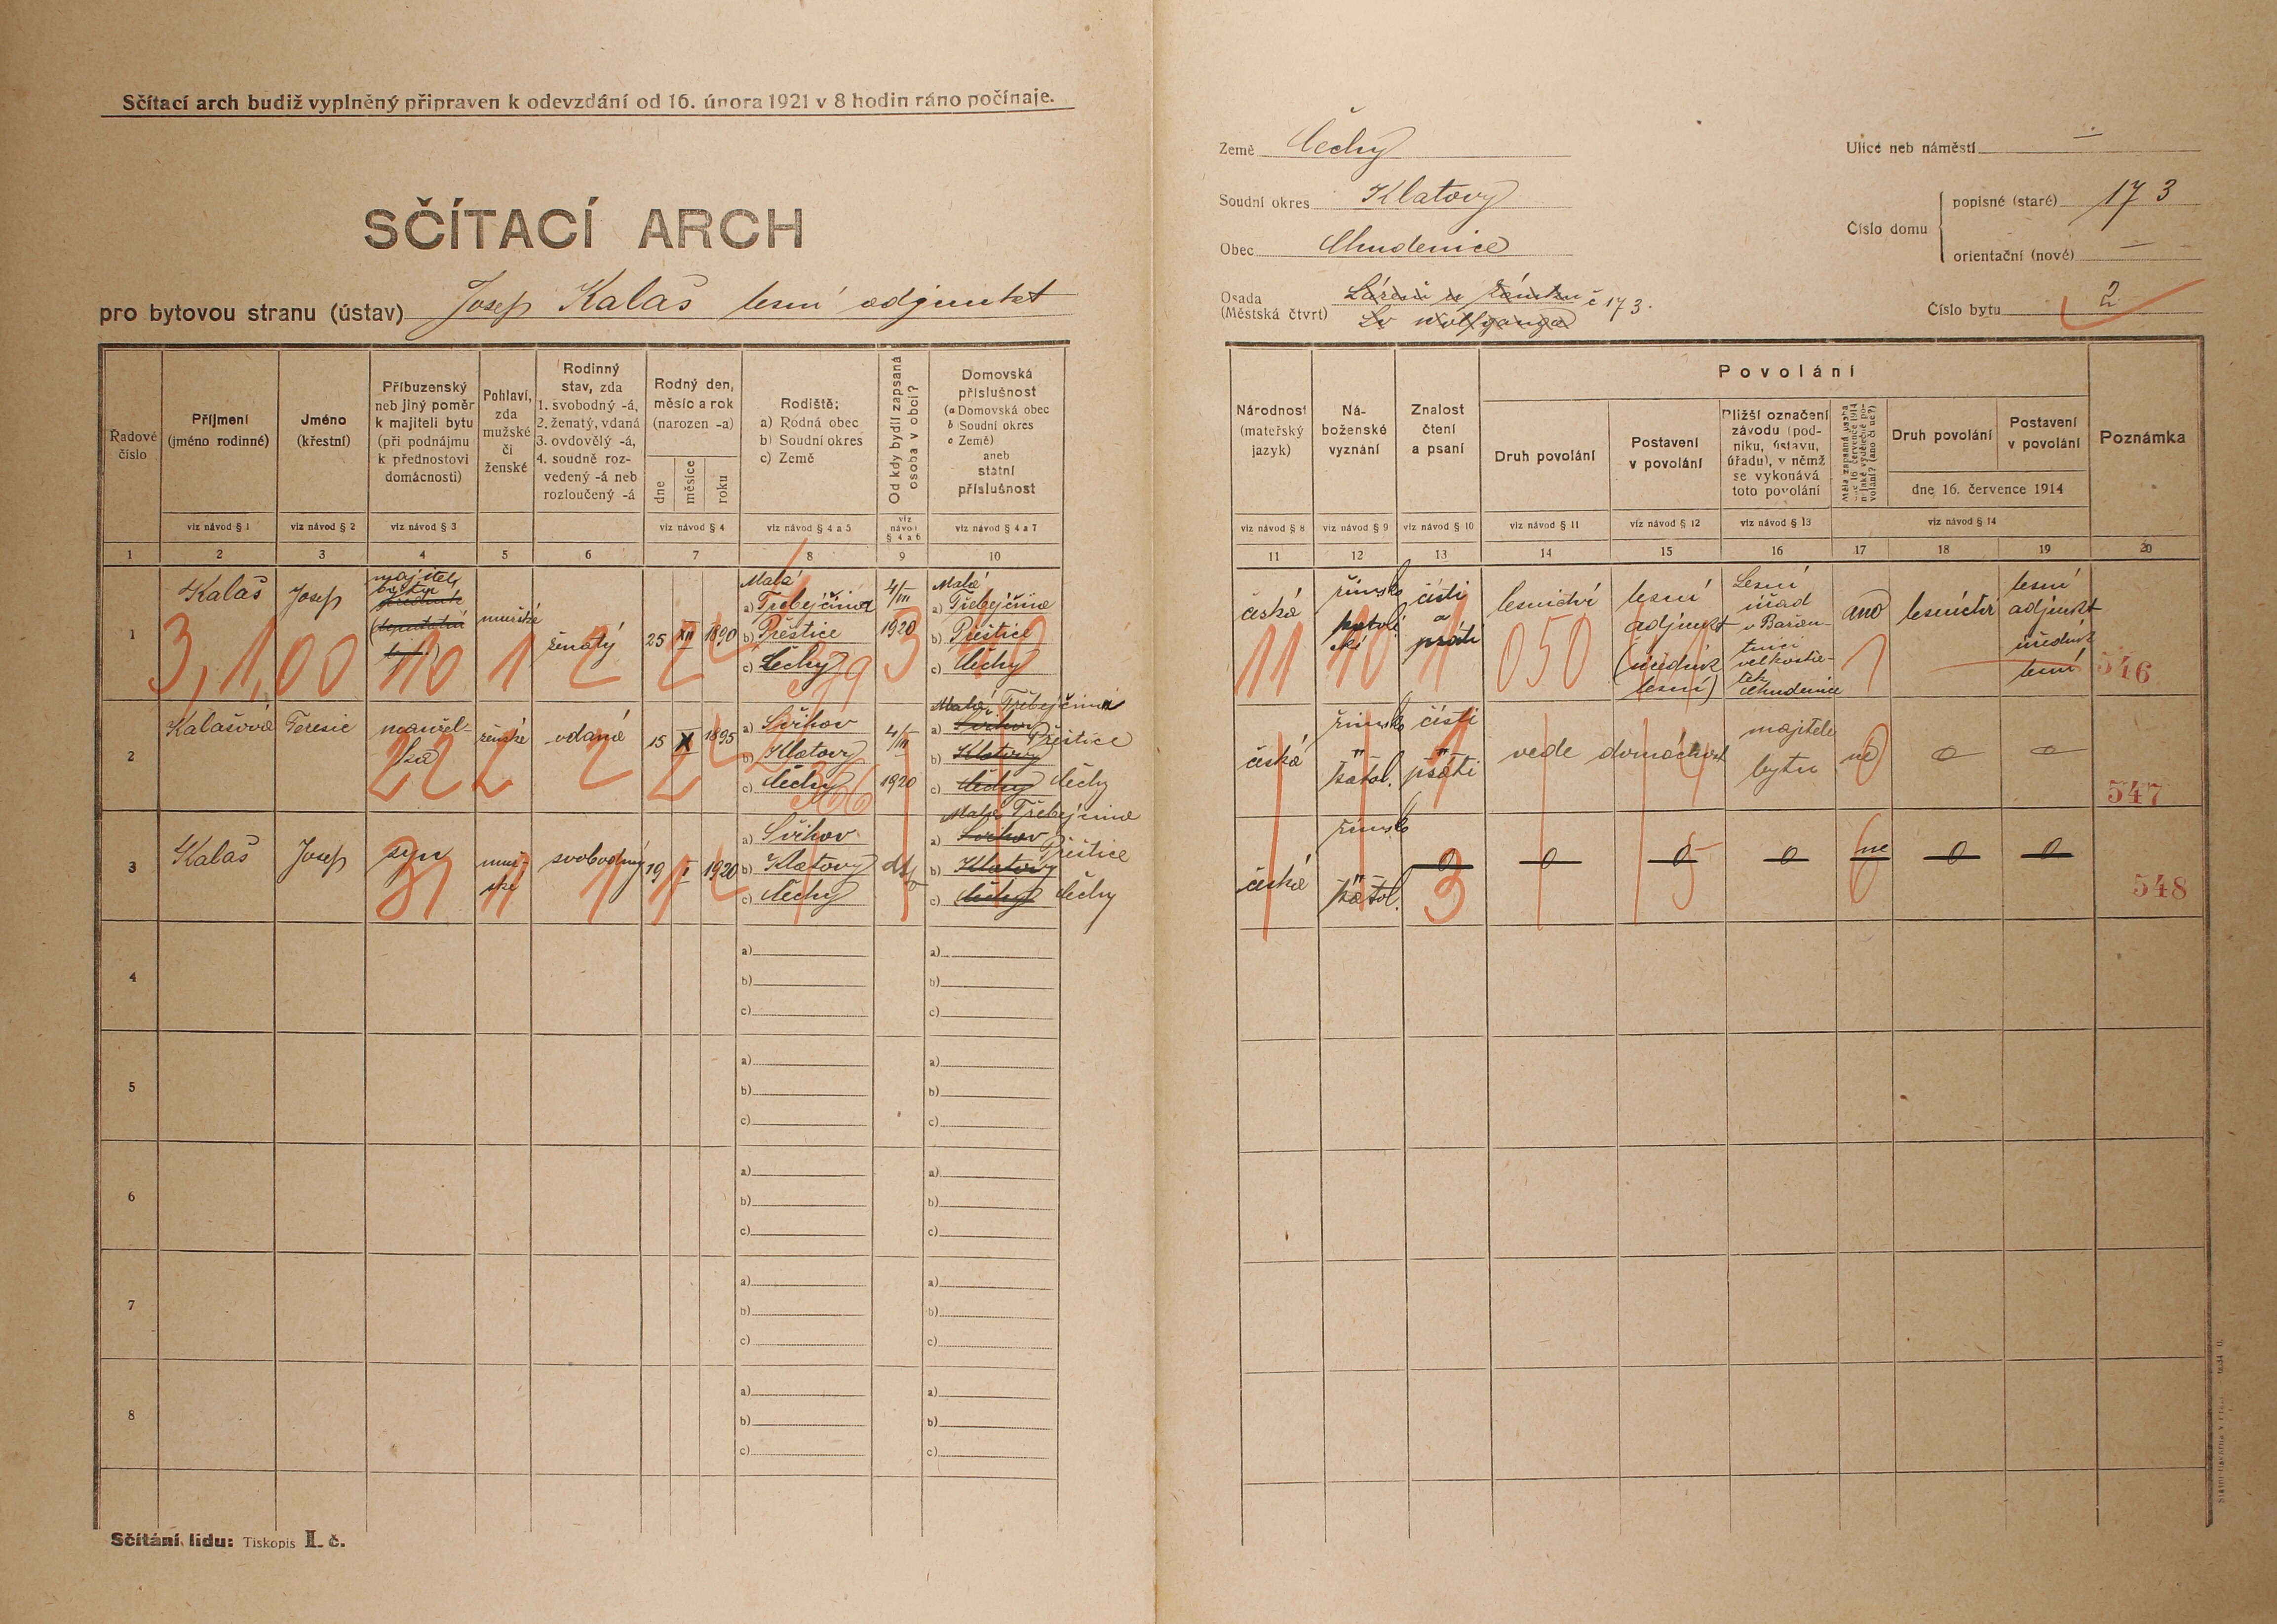 Sčítací arch budiž vyplněný připraven k odevzdání od 16. února 1921 v 8 hodin ráno počínaje.
SČÍTACÍ ARCH
pro bytovou stranu (ústav) Josef Kalaš lesní adjunkt
Země Čechy
Soudní okres Klatovy
Obec Chudenice
Osada
(Městská čtvrt)
č 173.
Ulice neb náměstí —
Číslo domu
popisné (staré) 173
orientační (nové) —
Číslo bytu 2
Řadové
číslo
Příjmení
(jméno rodinné)
Jméno
(křestní)
Příbuzenský
neb jiný poměr
k majiteli bytu
(při podnájmu
k přednostovi
domácnosti)
Pohlaví,
zda
mužské
či
ženské
Rodinný
stav, zda
1. svobodný -á,
2. ženatý, vdaná
3. ovdovělý -á,
4. soudně roz-
vedený -á neb
rozloučený -á
Rodný den,
měsíc a rok
(narozen -a)
dne
měsíce
roku
Rodiště:
a) Rodná obec
b) Soudní okres
c) Země
Od kdy bydlí zapsaná
osoba v obci?
Domovská
příslušnost
(a Domovská obec
b Soudní okres
c Země)
aneb
státní
příslušnost
viz návod § 1
viz návod § 2
viz návod § 3
viz návod § 4
viz návod § 4 a 5
viz
návod
§ 4 a 6
viz návod § 4 a 7
1 2 3 4 5 6 7 8 9 10
Národnost
(mateřský
jazyk)
Ná-
boženské
vyznání
Znalost
čtení
a psaní
Povolání
Druh povolání
Postavení
v povolání
Bližší označení
závodu (pod-
niku, ústavu,
úřadu), v němž
se vykonává
toto povolání
Měla zapsaná osoba
dne 16. července 1914
nějaké výdělečné po-
volání? (ano či ne?)
Druh povolání
Postavení
v povolání
dne 16. července 1914
Poznámka
viz návod § 8
viz návod § 9
viz návod § 10
viz návod § 11
viz návod § 12
viz návod § 13
viz návod § 14
11 12 13 14 15 16 17 18 19 20
1
Kalaš
Josef
majitel
bytu
mužské
ženatý
25 XII 1890
Malá
a) Třebejčina
b) Přeštice
c) Čechy
4/III
1920
Malá
a) Třebejčina
b) Přeštice
c) Čechy
česká
římsko
katoli
cký
čísti
a
psáti
lesnictví
lesní
adjunkt
(úředník
lesní)
Lesní
úřad
v
velkostatek
Chudenice
ano
lesnictví
lesní
adjunkt
úředník
lesní
546
3,1,00 10 1 2 2 379 3 10
11 10 1 050 1
2
Kalašová
Terezie
manžel-
ka
ženské
vdaná
15 X 1895
a) Švihov
b) Klatovy
c) Čechy
4/III
1920
Malá Třebejčina
a) Švihov
Přeštice
b) Klatovy
c) Čechy Čechy
česká
římsko
" katol.
čísti
" psáti
vede domácnost
majitele
bytu
ne
0
0
547
22 2 2 2 366
3
Kalaš
Josef
syn
muž-
ské
svobodný
19 I 1920
a) Švihov
b) Klatovy
c) Čechy
Malá Třebejčina
a) Švihov
Přeštice
b) Klatovy
c) Čechy Čechy
česká
římsko
" katol.
0
0
0
0
ne
0
0
548
31 1 1 1
3 5 6
4
a)
b)
c)
a)
b)
c)
5
a)
b)
c)
a)
b)
c)
6
a)
b)
c)
a)
b)
c)
7
a)
b)
c)
a)
b)
c)
8
a)
b)
c)
a)
b)
c)
Sčítání lidu: Tiskopis I. č.